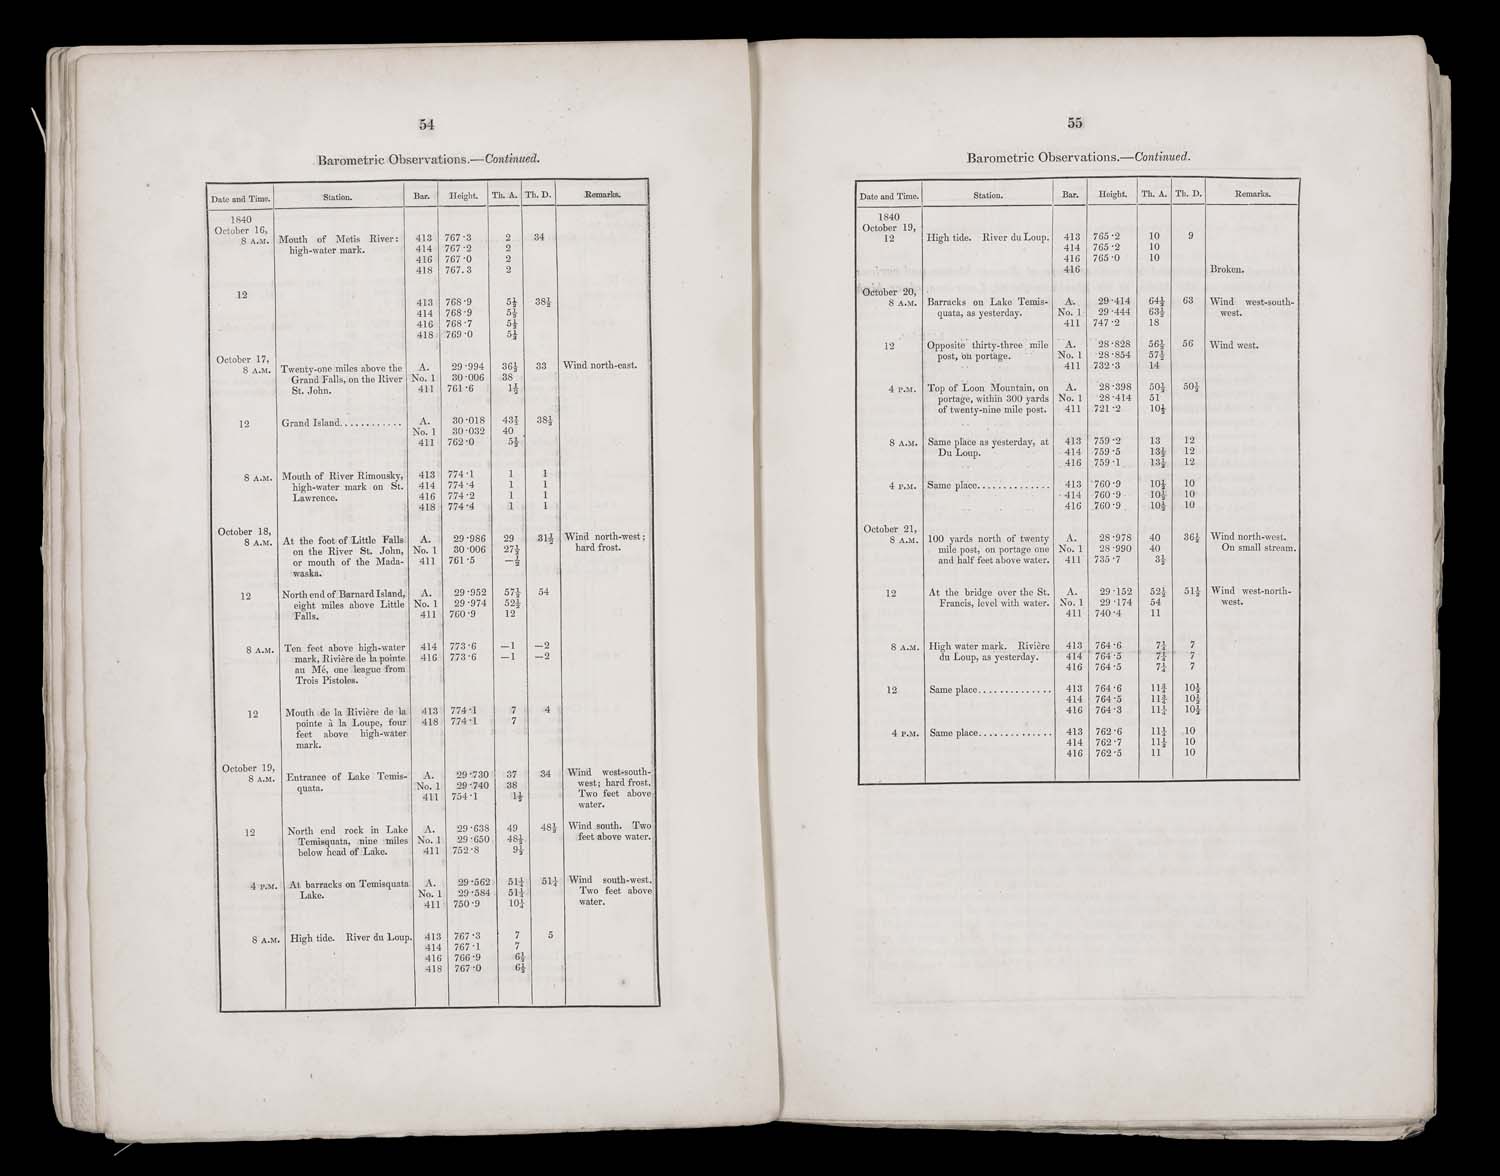 54
Barometric Observations.—Continued.
Date and Time. Station. Bar. Height. Th. A. Th. D. Remarks.
1840
October 16,
8 A.M. Mouth of Metis River: 413 767·3 2 34
high-water mark. 414 767·2 2
416 767·0 2
418 767.3 2
12
413 768·9 5½ 38½
414 768·9 5½
416 768·7 5½
418 769·0 5½
October 17,
8 A.M. Twenty-one miles above the A. 29·994 36½ 33 Wind north-east.
Grand Falls, on the River No. 1 30·006 38
St. John. 411 761·6 1½
12 Grand Island............ A. 30·018 43½ 38½
No. 1 30·032 40
411 762·0 5½
8 A.M. Mouth of River Rimousky, 413 774·1 1 1
high-water mark on St. 414 774·4 1 1
Lawrence. 416 774·2 1 1
418 774·4 1 1
October 18,
8 A.M. At the foot of Little Falls A. 29·986 29 31½ Wind north-west;
on the River St. John, No. 1 30·006 27½ hard frost.
or mouth of the Mada- 411 761·5 —½
waska.
12 North end of Barnard Island, A. 29·952 57½ 54
eight miles above Little No. 1 29·974 52½
Falls. 411 760·9 12
8 A.M. Ten feet above high-water 414 773·6 —1 —2
mark, Rivière de la pointe 416 773·6 —1 —2
au Mé, one league from
Trois Pistoles.
12 Mouth de la Rivière de la 413 774·1 7 4
pointe à la Loupe, four 418 774·1 7
feet above high-water
mark.
October 19,
8 A.M. Entrance of Lake Temis- A. 29·730 37 34 Wind west-south-
quata. No. 1 29·740 38 west; hard frost.
411 754·1 1½ Two feet above
water.
12 North end rock in Lake A. 29·638 49 48½ Wind south. Two
Temisquata, nine miles No. 1 29·650 48½ feet above water.
below head of Lake. 411 752·8 9½
4 P.M. At barracks on Temisquata A. 29·562 51¼ 51¼ Wind south-west.
Lake. No. 1 29·584 51¼ Two feet above
411 750·9 10¼ water.
8 A.M. High tide. River du Loup. 413 767·3 7 5
414 767·1 7
416 766·9 6½
418 767·0 6½
55
Barometric Observations.—Continued.
Date and Time. Station. Bar. Height. Th. A. Th. D. Remarks.
1840
October 19,
12 High tide. River du Loup. 413 765·2 10 9
414 765·2 10
416 765·0 10
416 Broken.
October 20,
8 A.M. Barracks on Lake Temis- A. 29·414 64½ 63 Wind west-south-
quata, as yesterday. No. 1 29·444 63½ west.
411 747·2 18
12 Opposite thirty-three mile A. 28·828 56½ 56 Wind west.
post, on portage. No. 1 28·854 57½
411 732·3 14
4 P.M. Top of Loon Mountain, on A. 28·398 50½ 50½
portage, within 300 yards No. 1 28·414 51
of twenty-nine mile post. 411 721·2 10½
8 A.M. Same place as yesterday, at 413 759·2 13 12
Du Loup. 414 759·5 13½ 12
416 759·1 13½ 12
4 P.M. Same place.............. 413 760·9 10½ 10
414 760·9 10½ 10
416 760·9 10½ 10
October 21,
8 A.M. 100 yards north of twenty A. 28·978 40 36½ Wind north-west.
mile post, on portage one No. 1 28·990 40 On small stream.
and half feet above water. 411 735·7 3½
12 At the bridge over the St. A. 29·152 52½ 51½ Wind west-north-
Francis, level with water. No. 1 29·174 54 west.
411 740·4 11
8 A.M. High water mark. Rivière 413 764·6 7¼ 7
du Loup, as yesterday. 414 764·5 7¼ 7
416 764·5 7¼ 7
12 Same place.............. 413 764·6 11¾ 10½
414 764·5 11¾ 10½
416 764·3 11¼ 10½
4 P.M. Same place.............. 413 762·6 11½ 10
414 762·7 11½ 10
416 762·5 11 10